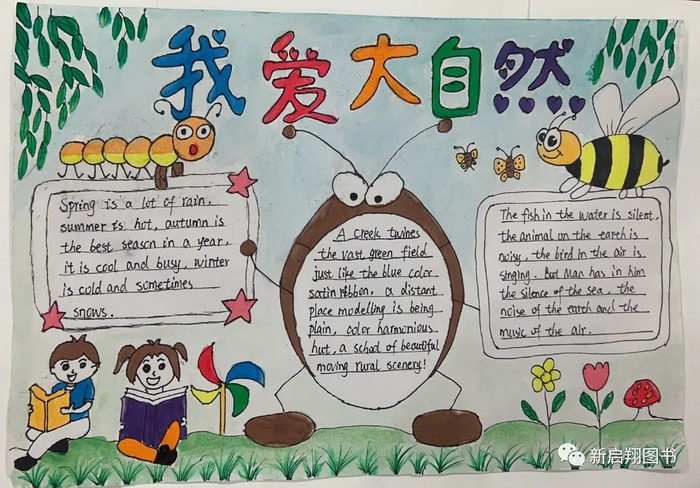 我爱大自然
Spring is a lot of rain,
summer is hot, autumn is
the best season in a year,
it is cool and busy, winter
is cold and sometimes
snows.
A creek twines
the vast green field
just like the blue color
satin ribbon, a distant
place modelling is being
plain, color harmonious
hut, a school of beautiful
moving rural scenery!
The fish in the water is silent,
the animal on the earth is
noisy, the bird in the air is
singing. But Man has in him
the silence of the sea, the
noise of the earth and the
music of the air.
新启翔图书